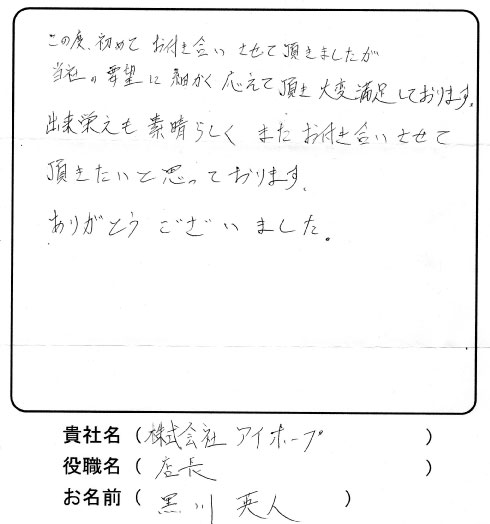 この度、初めて お付き合い させて頂きましたが
当社の要望に細かく応えて頂き大変満足しております。
出来栄えも素晴らしく またお付き合いさせて
頂きたいと思っております。
ありがとう ございました。
貴社名(株式会社 アイホープ)
役職名(店長)
お名前(黒川 英人)